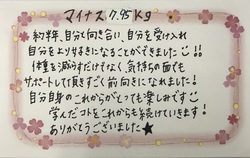 マイナス 7.95 kg
約半年、自分と向き合い、自分を受け入れ
自分をより好きになることができました!!
体重を減らすだけでなく、気持ちの面でも
サポートして頂きすごく前向きになれました!
自分自身のこれからがとっても楽しみです
学んだコトをこれからも続けていきます!
ありがとうございました★